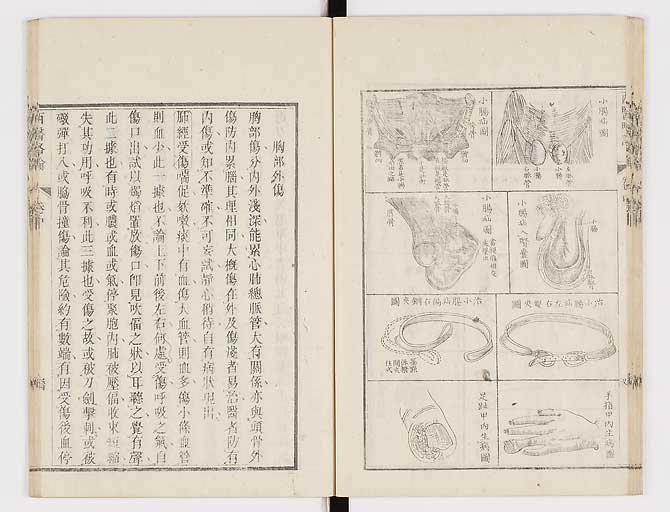 小腸疝圖
小腸疝圖
小腸疝圖
小腸疝入腎囊圖
小腸
治小腸疝左右鋼夾圖
治小腸疝偏右鋼夾圖
手指甲內生病圖
足趾甲內生病圖
胸部外傷
胸部傷分內外淺深能累心肺總脈管大有關係亦與頭骨外
傷防內累腦其理相同大槪傷在外及傷淺者易治醫者防有
內傷或知不準確不可妄試靜心俏待自有病狀現出
肺經受傷喘促欬嗽痰中有血傷大血管則血多傷小條血管
則血少此一據也不論上下前後左右何處受傷呼吸之氣自
傷口出試以燭焰置放傷口卽見吹偪之狀以耳聽之覺有聲
此二據也有時或膿或血或氣停聚胞內肺被壓偪收束短縮
失其功用呼吸不利此三據也受傷之故或被刀劍擊刺或被
礮彈打入或脇骨撞傷論其危險約有數端有因受傷後血停
西醫略論
卷中